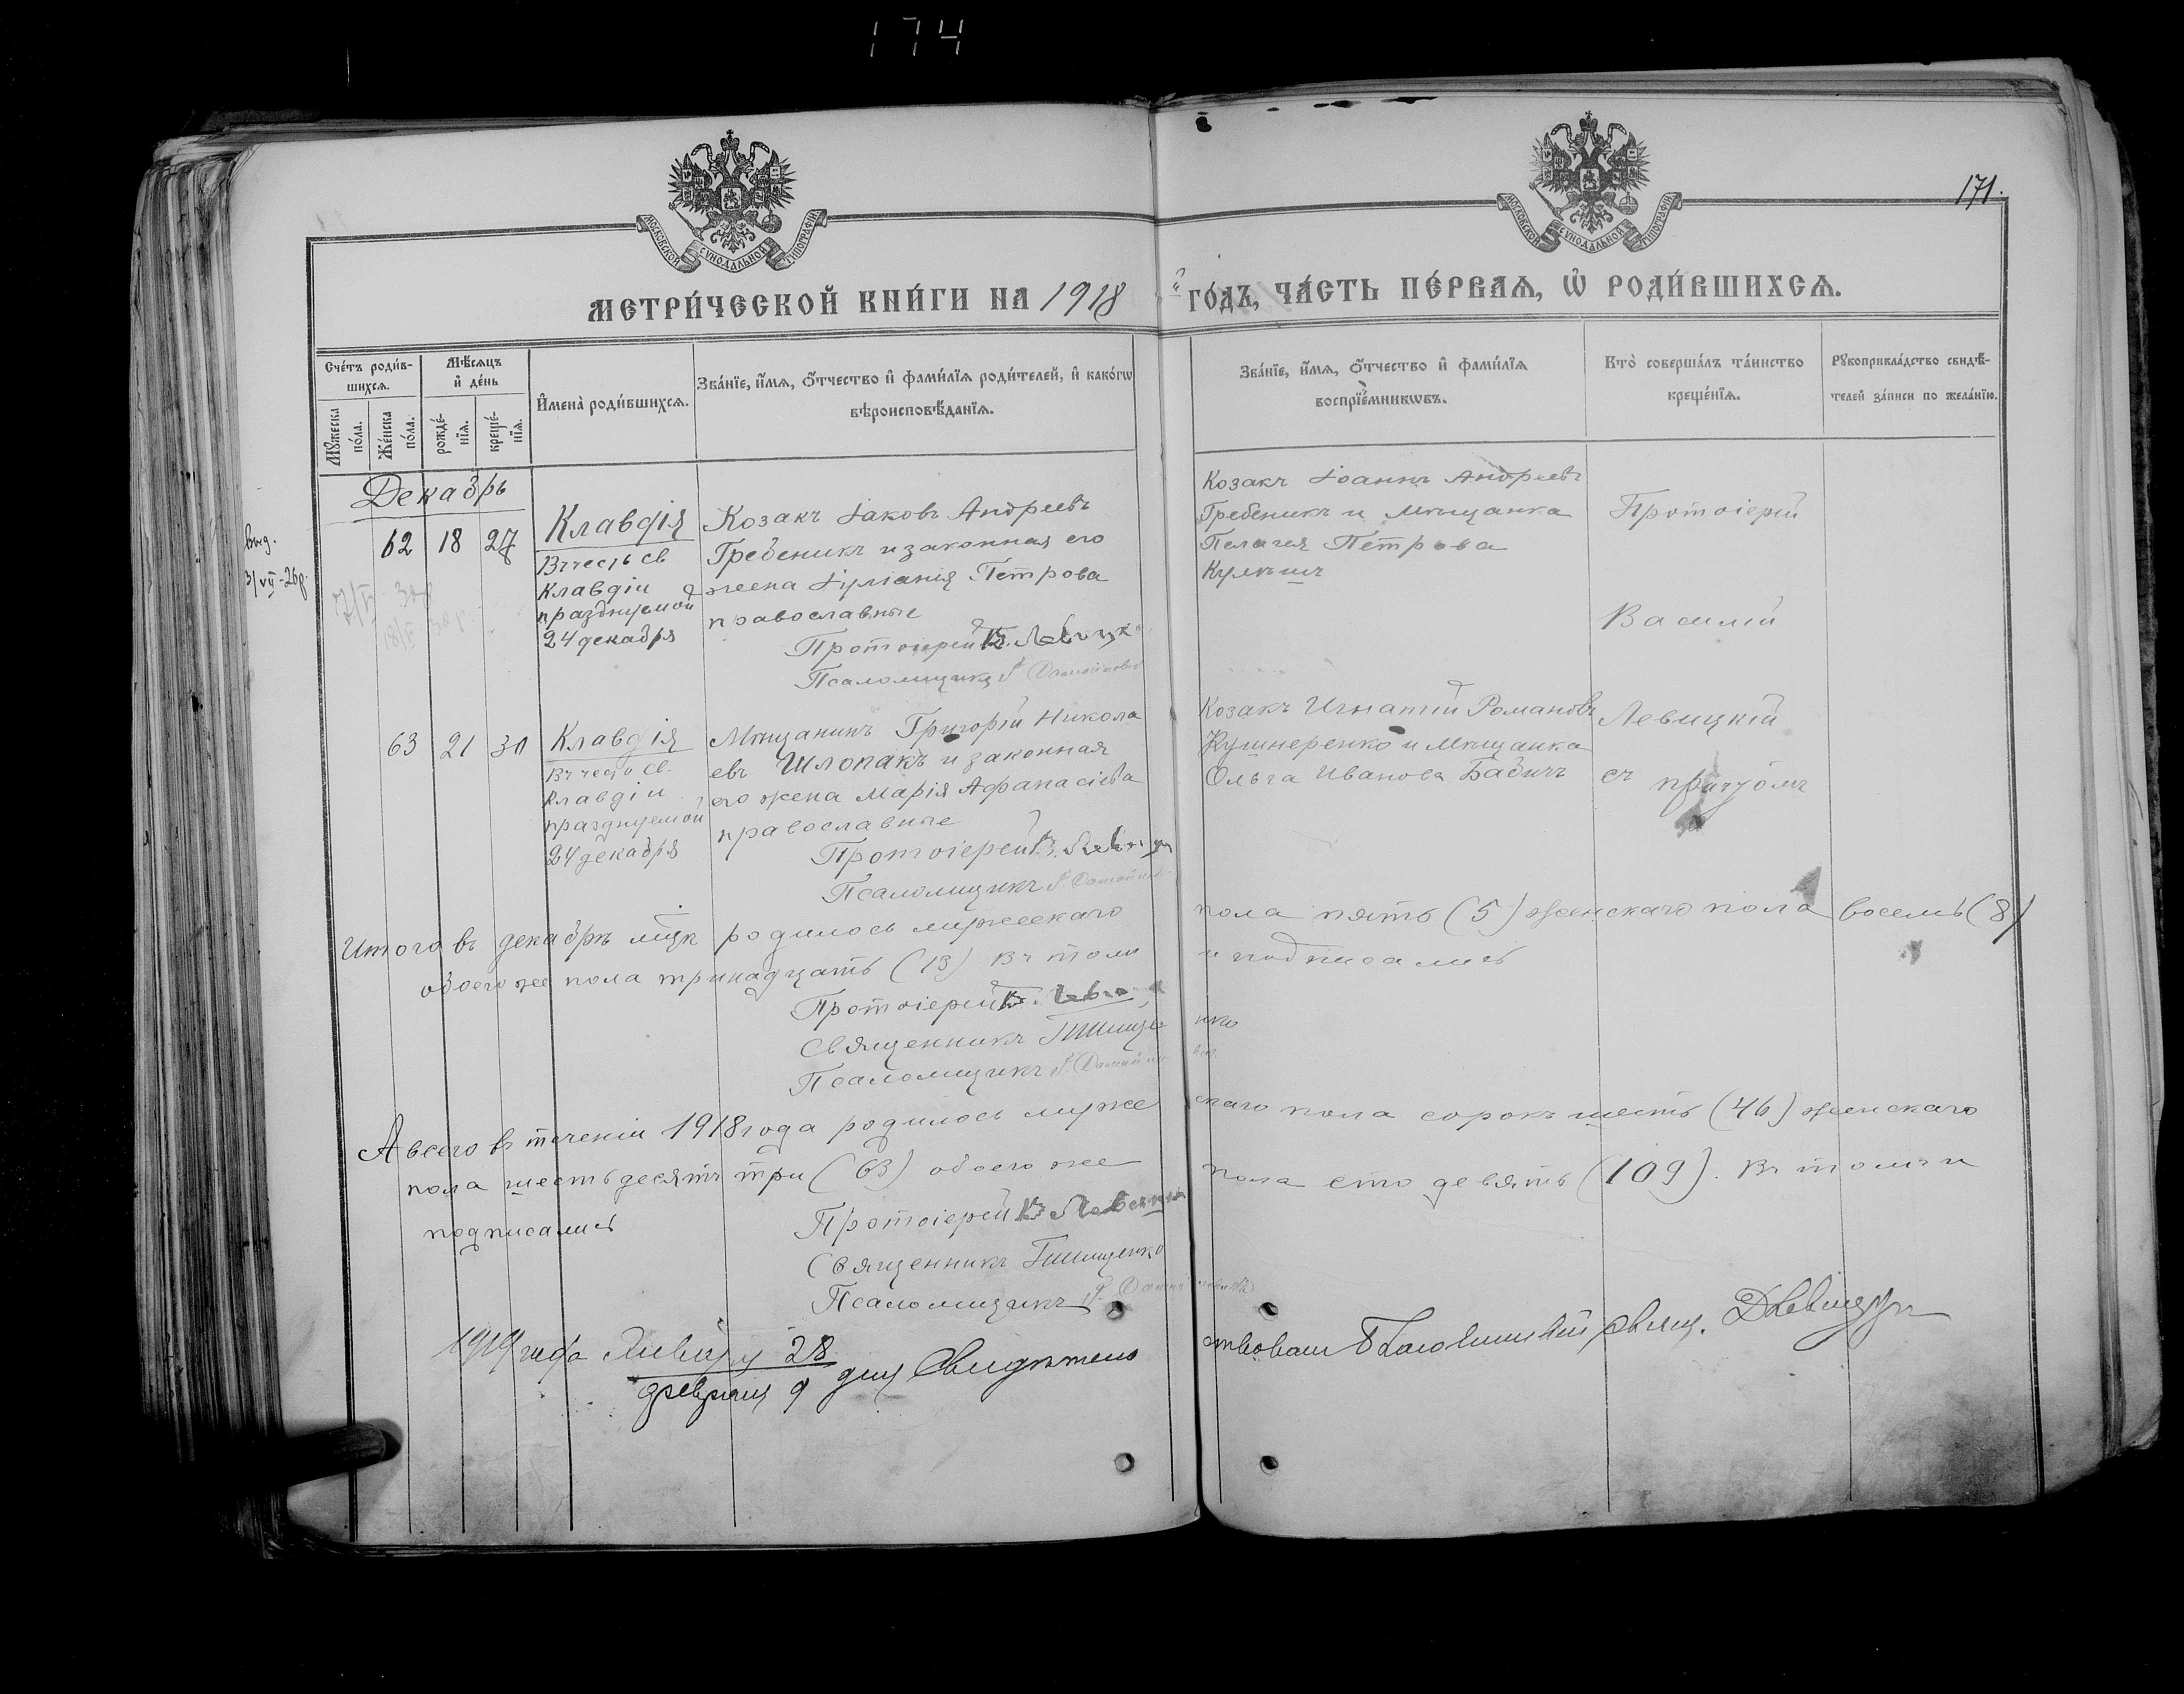 174
171.
МОСКОВСКОЙ СѴНОДАЛЬНОЙ ТИПОГРАФІИ
МОСКОВСКОЙ СѴНОДАЛЬНОЙ ТИПОГРАФІИ
МЕТРИ́ЧЕСКОЙ КНИ́ГИ НА 1918 й ГО́ДЪ, ЧА́СТЬ ПЕ́РВАЯ, Ѡ РОДИ́ВШИХСЯ.
Сче́тъ роди́в-
шихся.
Мѣ́сяцъ
и҆ де́нь
Мꙋ́жеска
по́ла.
Же́нска
по́ла.
рожде́-
нїя.
креще́-
нїя.
И҆мена̀ роди́вшихся.
Зва́нїе, и҆́мя, ѻ҆́тчество и҆ фами́лїя роди́телей, и҆ како́гѡ
вѣроисповѣ́данїя.
Зва́нїе, и҆́мя, ѻ҆́тчество и҆ фами́лїя
воспрїе́мникѡвъ.
Кто̀ соверша́лъ та́инство
креще́нїя.
Рꙋкоприкла́дство свидѣ́-
телей за́писи по жела́нїю.
Декабрь
выд.
3/VII-26р.
62 18 27
Клавдія
Въ честь св.
Клавдіи
празднуемой
24 декабря
Козакъ Іаковъ Андреевъ
Гребеникъ и законная его
жена Іуліанія Петрова
православные
Протоіерей В. Левицк
Псаломщикъ
Козакъ Іоаннъ Андреевъ
Гребеникъ и мѣщанка
Пелагея Петрова
Протоіерей
Василій
Левицкій
съ причтомъ
63 21 30
Клавдія
Въ честь св.
Клавдіи
празднуемой
24 декабря
Мѣщанинъ Григорій Никола
евъ Шлопакъ и законная
его жена Марія Афанасіева
православные
Протоіерей В. Левицк
Псаломщикъ
Козакъ Игнатій Романовъ
Кушнеренко и мѣщанка
Ольга Иванова Бабичъ
Итого въ декабрѣ м-цѣ родилось мужескаго пола пять (5) женскаго пола восемь (8)
обоего же пола тринадцать (13) Въ томъ и подписались
Протоіерей В. Левиц
Священникъ
Псаломщикъ
А всего въ теченіи 1918 года родилось муже скаго пола сорокъ шесть (46) женскаго
пола шестьдесятъ три (63) обоего же пола сто девять (109). Въ томъ и
подписались
Протоіерей В. Левицкій
Священникъ
Псаломщикъ
1919 года Января 28
февраля 9 дня Свидѣтельствовалъ Благочинный, свящ. Д. Левицкій